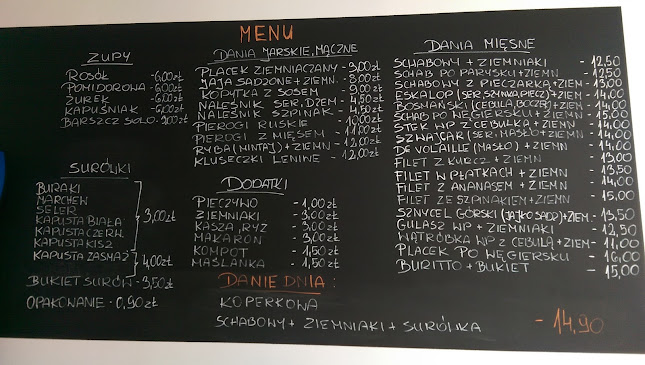 MENU
ZUPY
ROSÓŁ -6,00zł
POMIDOROWA -6,00zł
ŻUREK -6,00zł
KAPUŚNIAK -6,00zł
BARSZCZ SOLO -3,00zł
SURÓWKI
BURAKI
MARCHEW
SELER
KAPUSTA BIAŁA
KAPUSTA CZERW.
KAPUSTA KISZ
3,00zł
KAPUSTA ZASMAŻ
4,00zł
BUKIET SURÓW -3,50zł
OPAKOWANIE -0,90zł
DANIA JARSKIE, MĄCZNE
PLACEK ZIEMNIACZANY -9,00zł
JAJA SADZONE + ZIEMN. -8,00zł
KOPYTKA Z SOSEM -9,00zł
NALEŚNIK SER, DŻEM -4,50zł
NALEŚNIK SZPINAK -4,50zł
PIEROGI RUSKIE -10,00zł
PIEROGI Z MIĘSEM -11,00zł
RYBA (MINTAJ) + ZIEMN -12,00zł
KLUSECZKI LENIWE -12,00zł
DODATKI
PIECZYWO -1,00zł
ZIEMNIAKI -3,00zł
KASZA, RYŻ -3,00zł
MAKARON -3,00zł
KOMPOT -1,50zł
MAŚLANKA -1,50zł
DANIE DNIA:
KOPERKOWA
SCHABOWY + ZIEMNIAKI + SURÓWKA -14,90
DANIA MIĘSNE
SCHABOWY + ZIEMNIAKI -12,50
SCHAB PO PARYSKU + ZIEMN -12,50
SCHABOWY Z PIECZARKĄ + ZIEM -13,00
ESKALOP (SER, SZYNKA, PIECZ) + ZIEM -14,00
BOSMAŃSKI (CEBULA, BOCZEK) + ZIEM -14,00
SCHAB PO WĘGIERSKU + ZIEMN -15,00
STEK WP Z CEBULKĄ + ZIEMN -14,00
SZWAJCAR (SER, MASŁO) + ZIEMN -14,00
DE VOLAILLE (MASŁO) + ZIEMN -14,00
FILET Z KURCZ + ZIEMN -13,00
FILET W PŁATKACH + ZIEMN -13,50
FILET Z ANANASEM + ZIEMN -14,00
FILET ZE SZPINAKIEM + ZIEMN -15,00
SZNYCEL GÓRSKI (JAJKO SADZ) + ZIEM -13,50
GULASZ WP + ZIEMNIAKI -12,50
WĄTRÓBKA WP Z CEBULĄ + ZIEM -11,00
PLACEK PO WĘGIERSKU -16,00
BURITTO + BUKIET -15,00